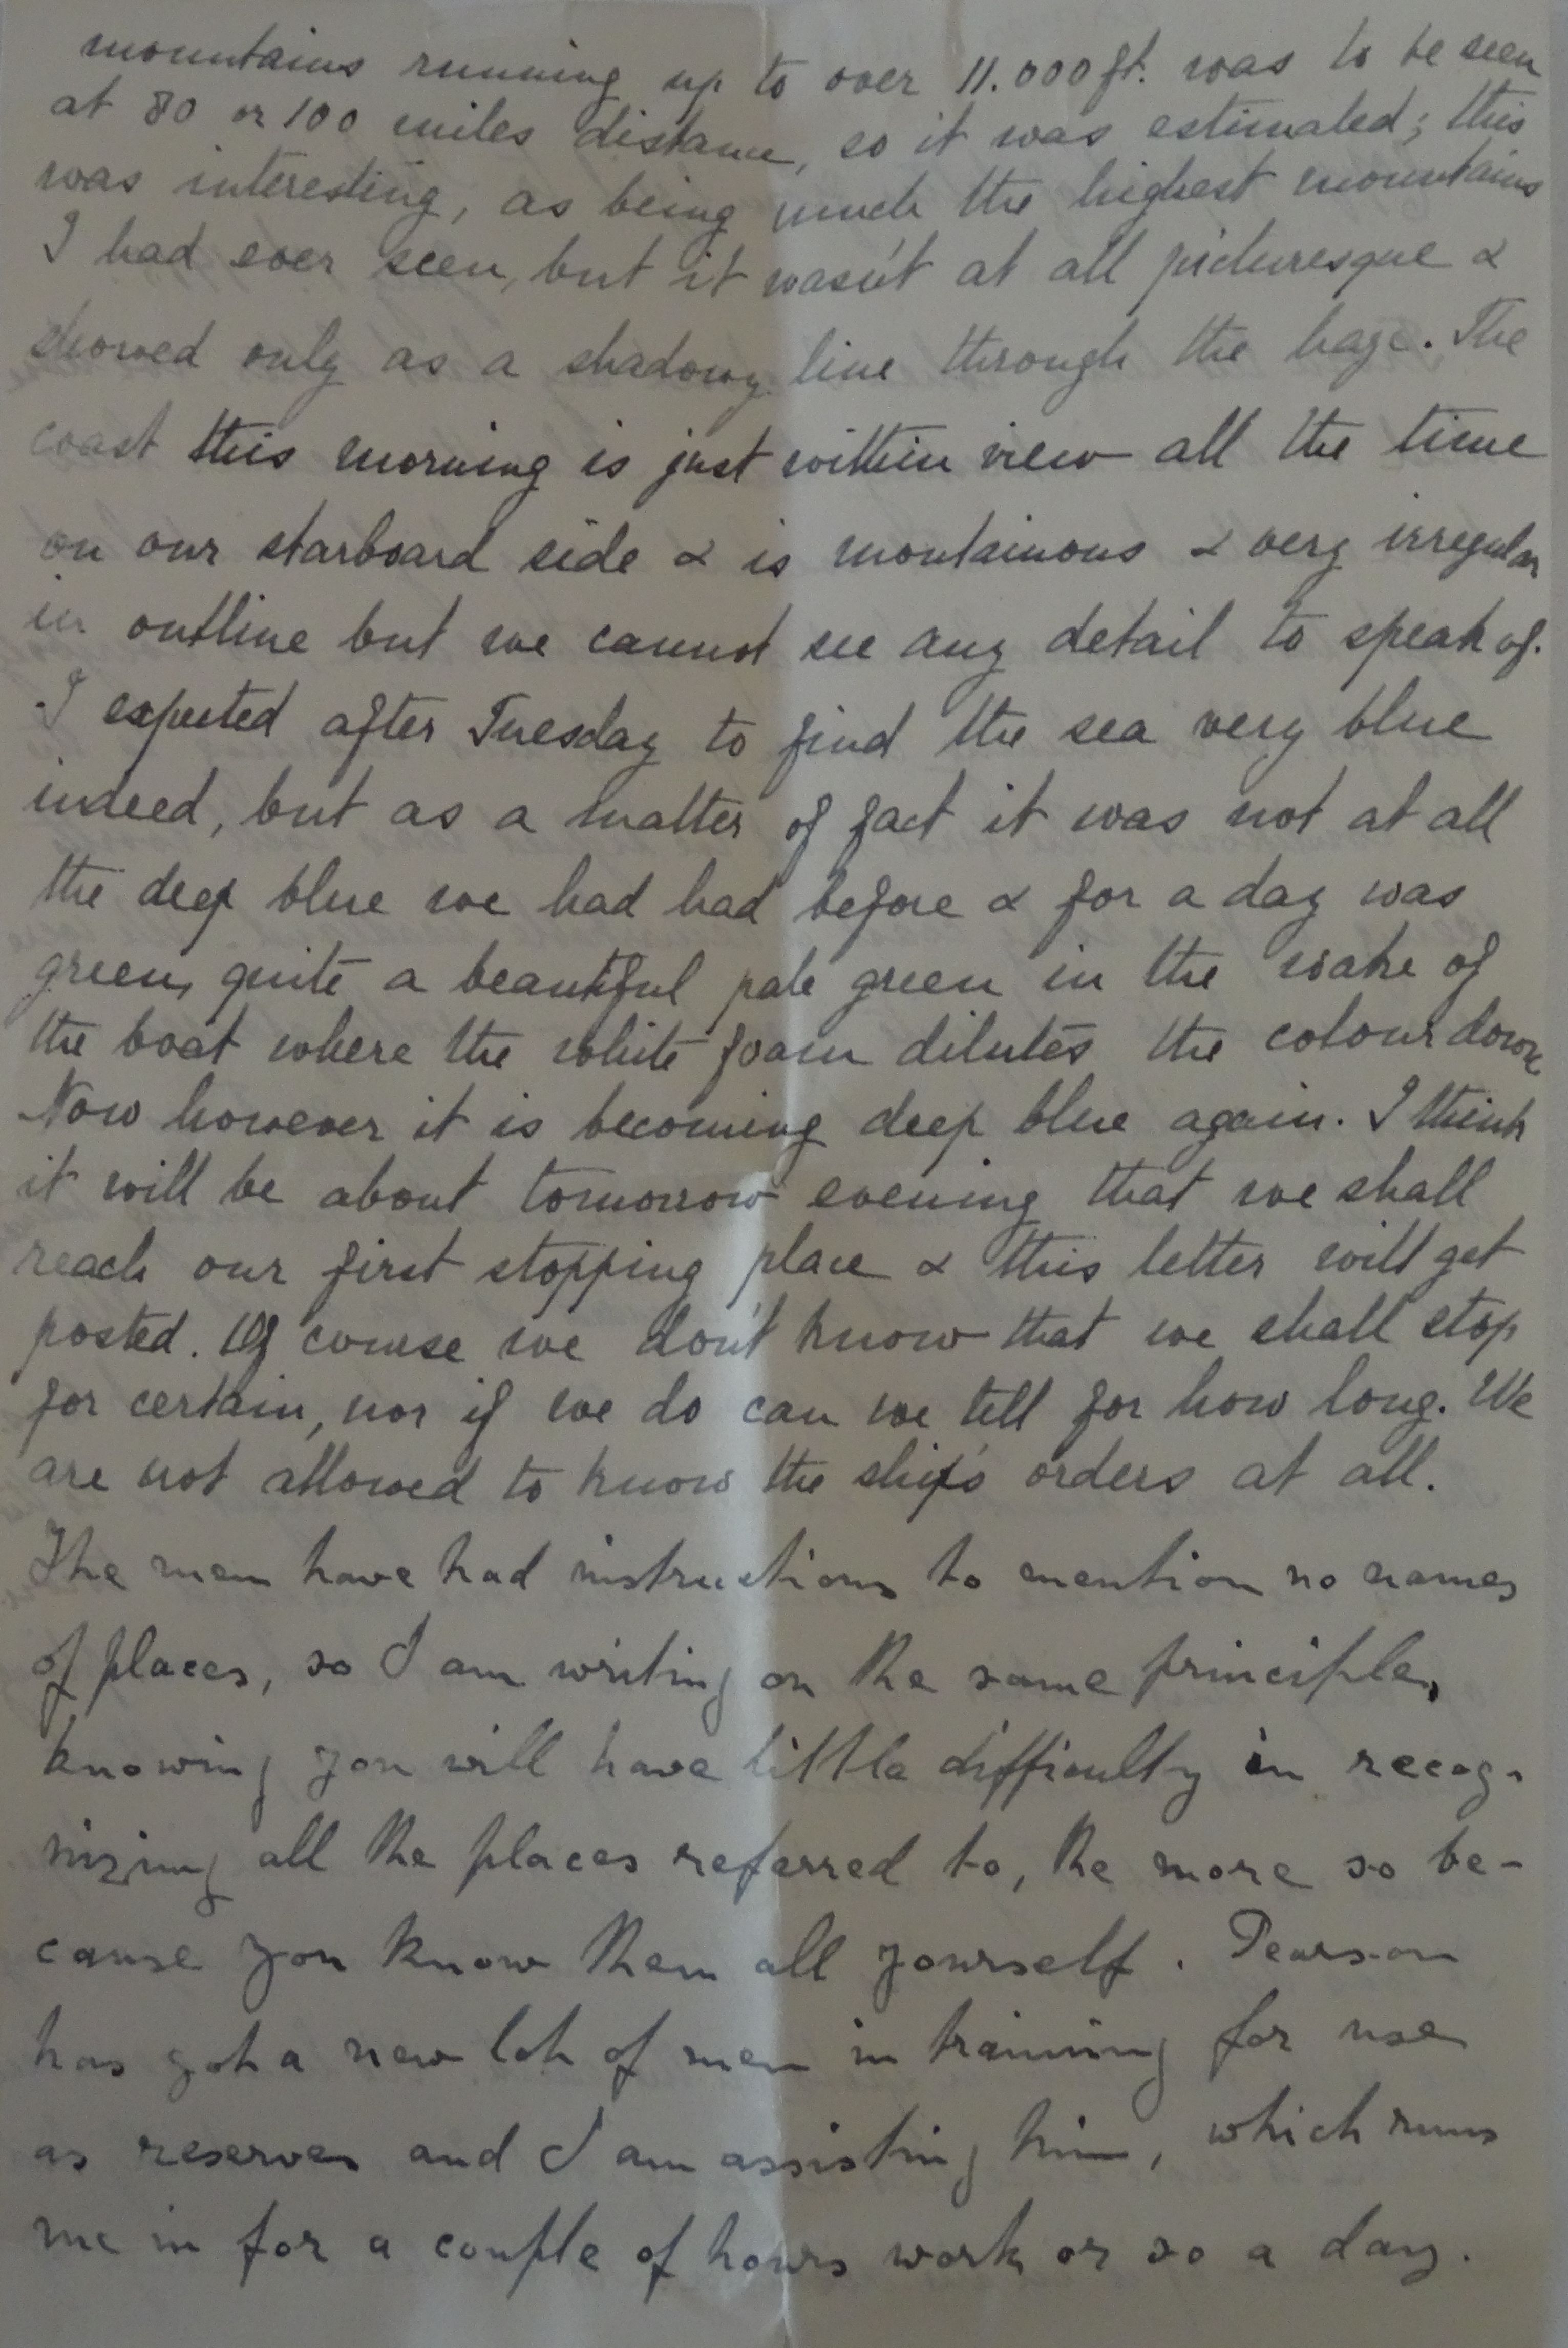 mountains running up to over 11.000 ft. was to be seen
at 80 or 100 miles distance, so it was estimated; this
was interesting, as being much the highest mountains
I had ever seen, but it wasn't at all picturesque &
showed only as a shadowy line through the haze. The
coast this morning is just within view all the time
on our starboard side & is mountainous & very irregular
in outline but we cannot see any detail to speak of.
I expected after Tuesday to find the sea very blue
indeed, but as a matter of fact it was not at all
the deep blue we had had before & for a day was
green, quite a beautiful pale green in the wake of
the boat where the white foam dilutes the colour down.
Now however it is becoming deep blue again. I think
it will be about tomorrow evening that we shall
reach our first stopping place & this letter will get
posted. Of course we don't know that we shall stop
for certain, nor if we do can we tell for how long. We
are not allowed to know the ship's orders at all.
The men have had instructions to mention no names
of places, so I am writing on the same principle,
knowing you will have little difficulty in recog-
nizing all the places referred to, the more so be-
cause you know them all yourself. Pearson
has got a new lot of men in training for use
as reserves and I am assisting him, which runs
me in for a couple of hours work or so a day.